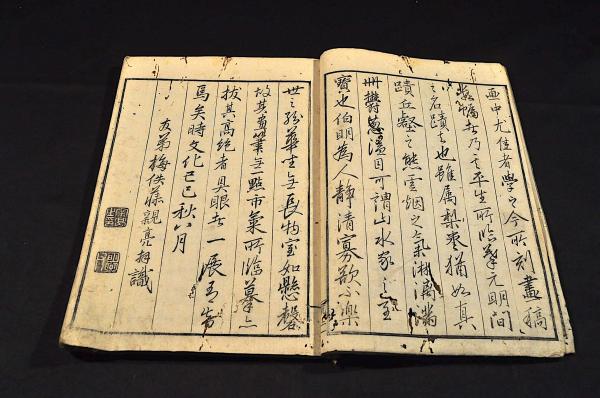 画中尤佳者學之今所刻畫稿
數幅者乃之平生所臨摹元明間
之名蹟也雖属梨棗猶如真
蹟丘壑之態雲烟之氣淋漓滿
冊欝葱溢目可謂山水家之至
寳也伯明為人静清寡欲不樂
世之紛華生無長物室如懸磬
故其畫筆無一點市氣所臨摹亦
拔其高絶者具眼者一展可知
焉矣時文化己巳秋八月
友弟梅佚藤親亮拜識